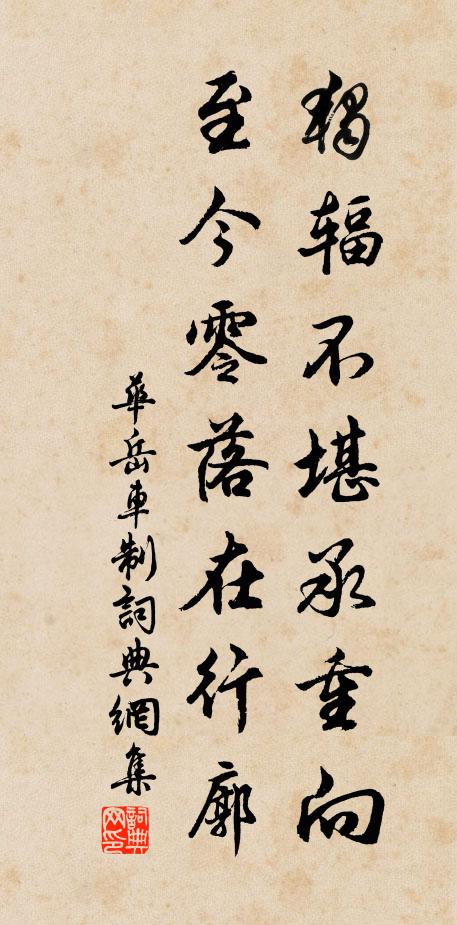 獨辐不堪承重向
至今零落在行廊
華岳車制詞典網集
詞典网印